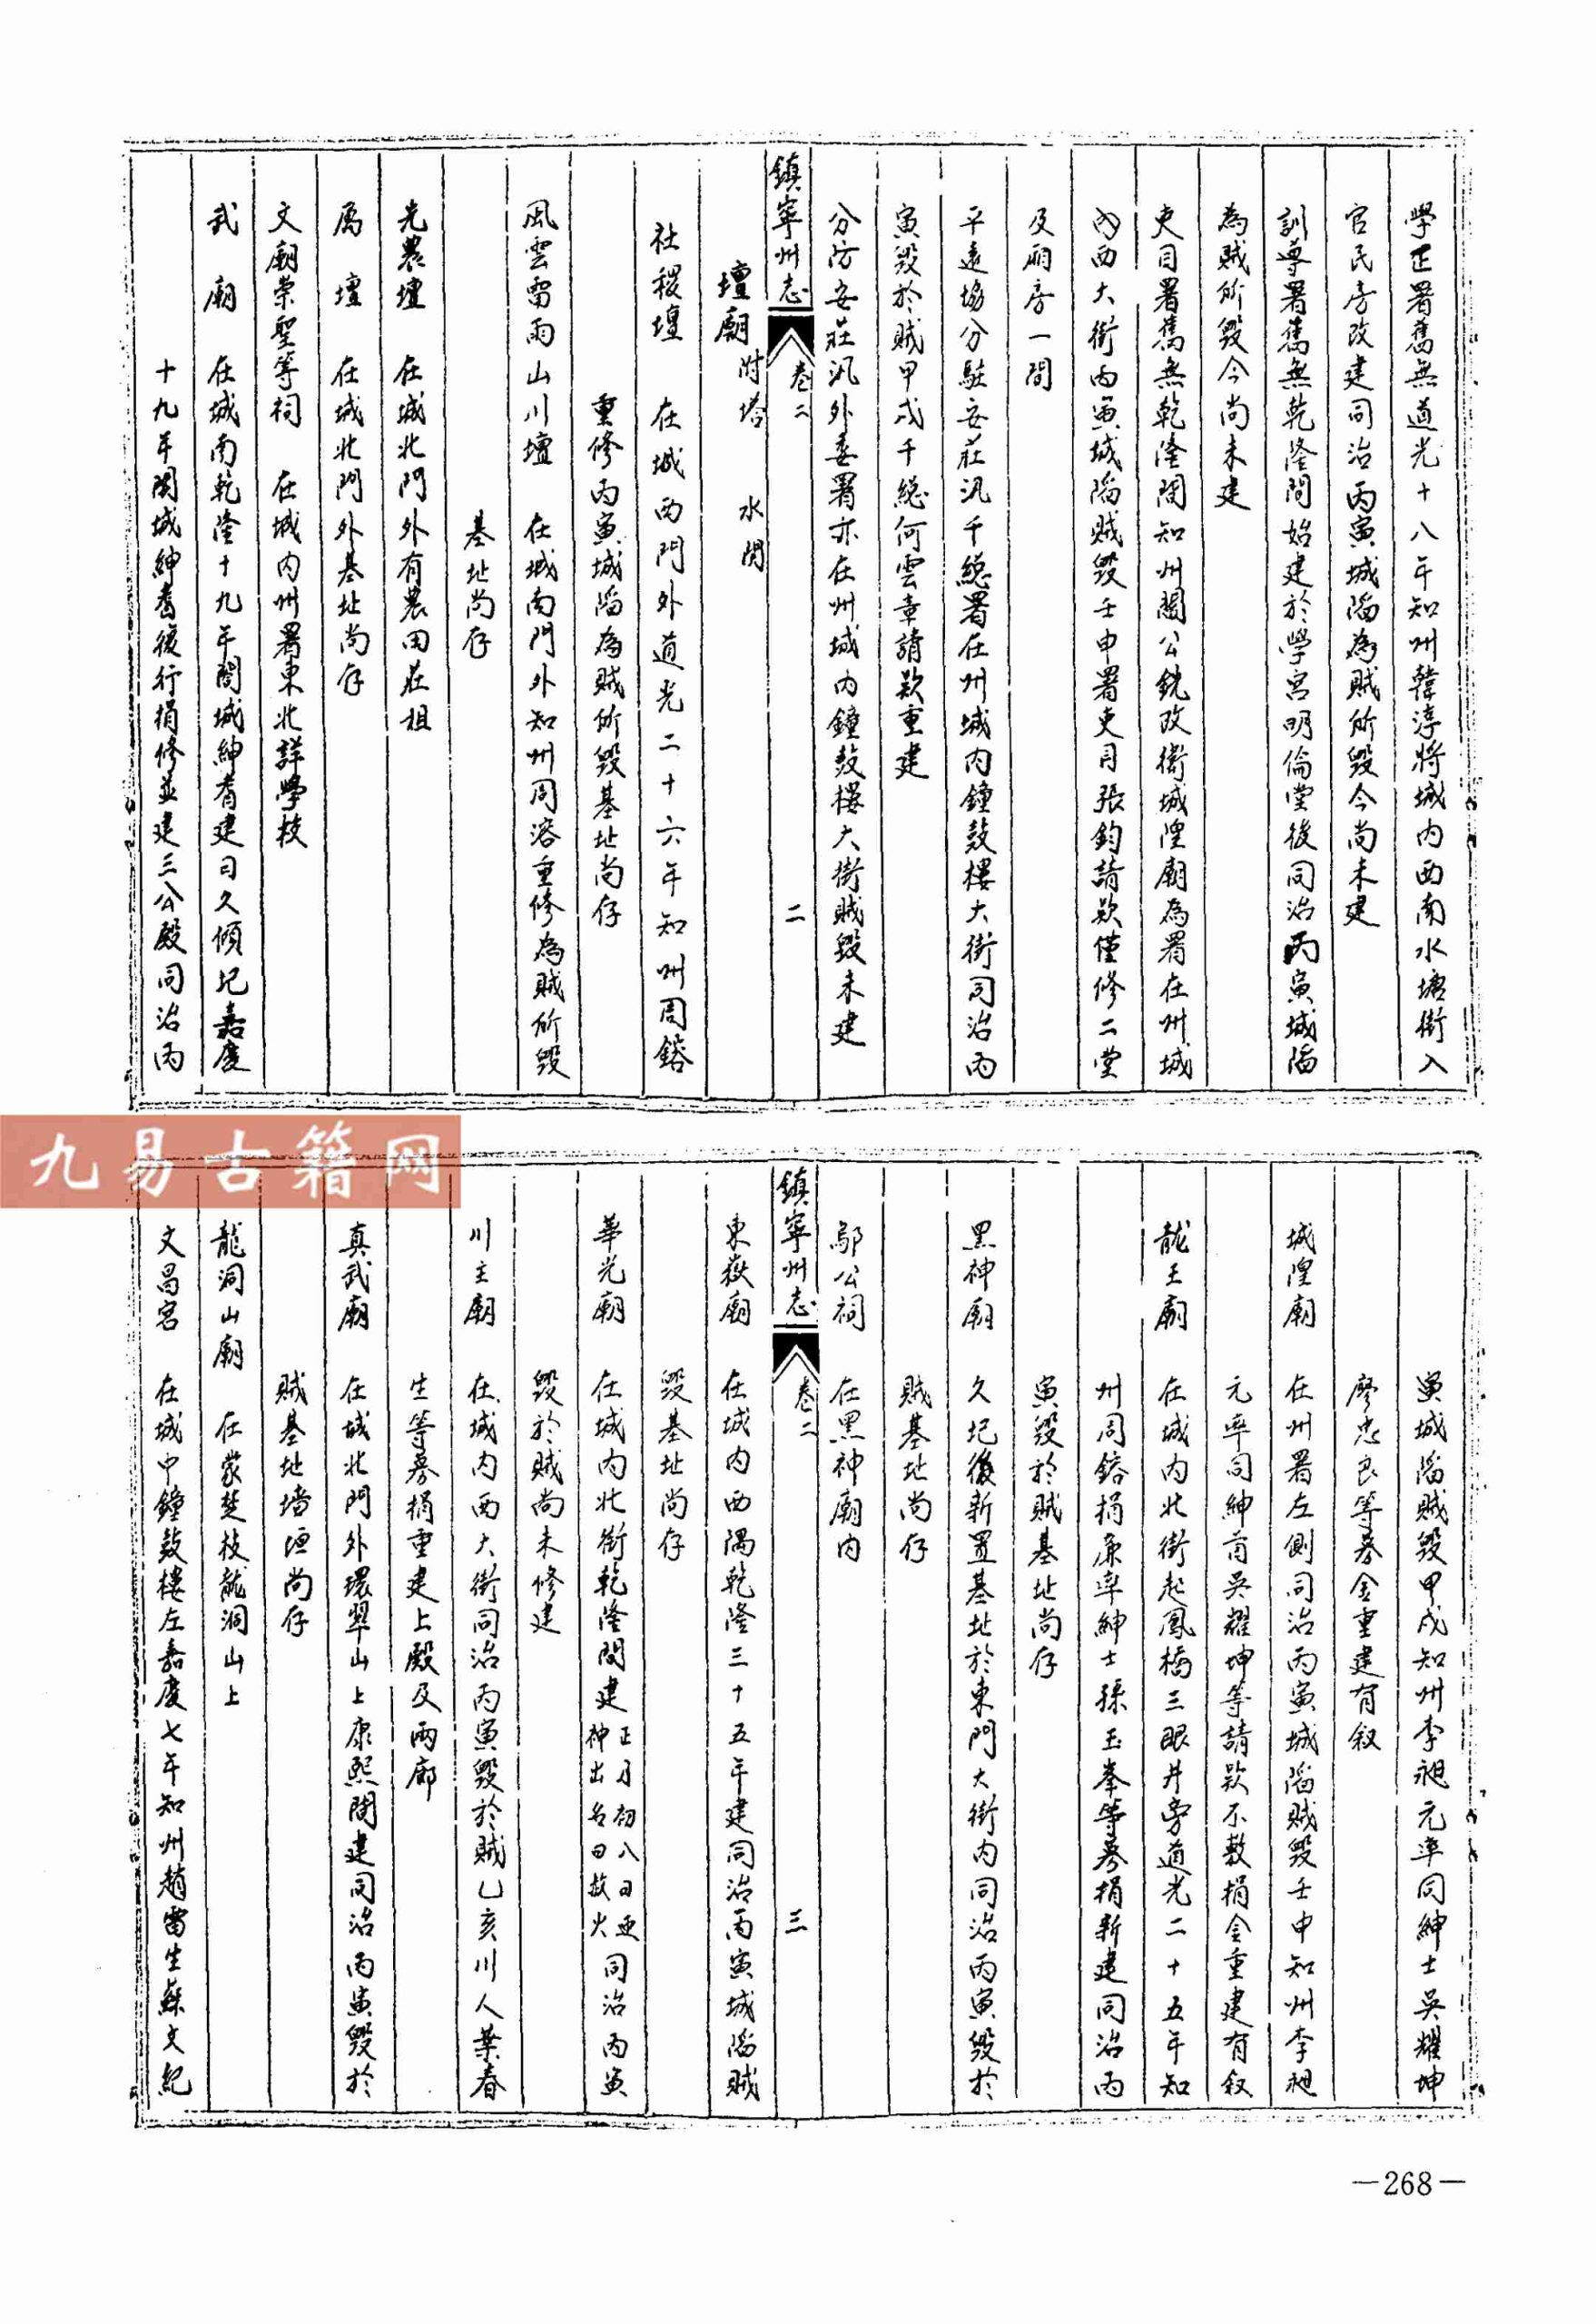 學正署舊無道光十八年知州韓淳將城内西南水塘街入
官民房改建同治丙寅城陷為賊所毀今尚未建
訓導署舊無乾隆間始建於學宮明倫堂後同治丙寅城陷
為賊所毀今尚未建
吏目署舊無乾隆間知州閻公銑改衛城隍廟為署在州城
内西大街丙寅城陷賊毀壬申署吏目張鈞請欵僅修二堂
及廂房一間
平遠協分駐安莊汛千總署在州城内鐘鼓樓大街同治丙
寅毀於賊甲戍千總何雲章請欵重建
分防安莊汛外委署亦在州城内鐘鼓樓大街賊毀未建
鎮寧州志 卷二 二
壇廟 附塔 水閘
社稷壇 在城西門外道光二十六年知州周鎔
重修丙寅城陷為賊所毀基址尚存
風雲雷雨山川壇 在城南門外知州周溶重修為賊所毀
基址尚存
先農壇 在城北門外有農田莊租
厲壇 在城北門外基址尚存
文廟崇聖等祠 在城内州署東北詳學校
武廟 在城南乾隆十九年閤城紳耆建日久傾圮嘉慶
十九年閤城紳耆復行捐修並建三公殿同治丙
寅城陷賊毀甲戍知州李昶元率同紳士吳耀坤
廖忠良等募金重建有叙
城隍廟 在州署左側同治丙寅城陷賊毀壬申知州李昶
元率同紳首吳耀坤等請欵不敷捐金重建有叙
龍王廟 在城内北街起鳳橋三眼井旁道光二十五年知
州周鎔捐廉率紳士孫玉峯等募捐新建同治丙
寅毀於賊基址尚存
黑神廟 久圮後新置基址於東門大街内同治丙寅毀於
賊基址尚存
鄔公祠 在黑神廟内
鎮寧州志 卷二 三
東嶽廟 在城内西隅乾隆三十五年建同治丙寅城陷賊
毀基址尚存
華光廟 在城内北街乾隆間建正月初八日迎神出名曰救火同治丙寅
毀於賊尚未修建
川主廟 在城内西大街同治丙寅毀於賊乙亥川人葉春
生等募捐重建上殿及兩廊
真武廟 在城北門外環翠山上康熙間建同治丙寅毀於
賊基址墻垣尚存
龍洞山廟 在蒙楚枝龍洞山上
文昌宮 在城中鐘鼓樓左嘉慶七年知州趙雷生蘇文紀
九易古籍网
—268—